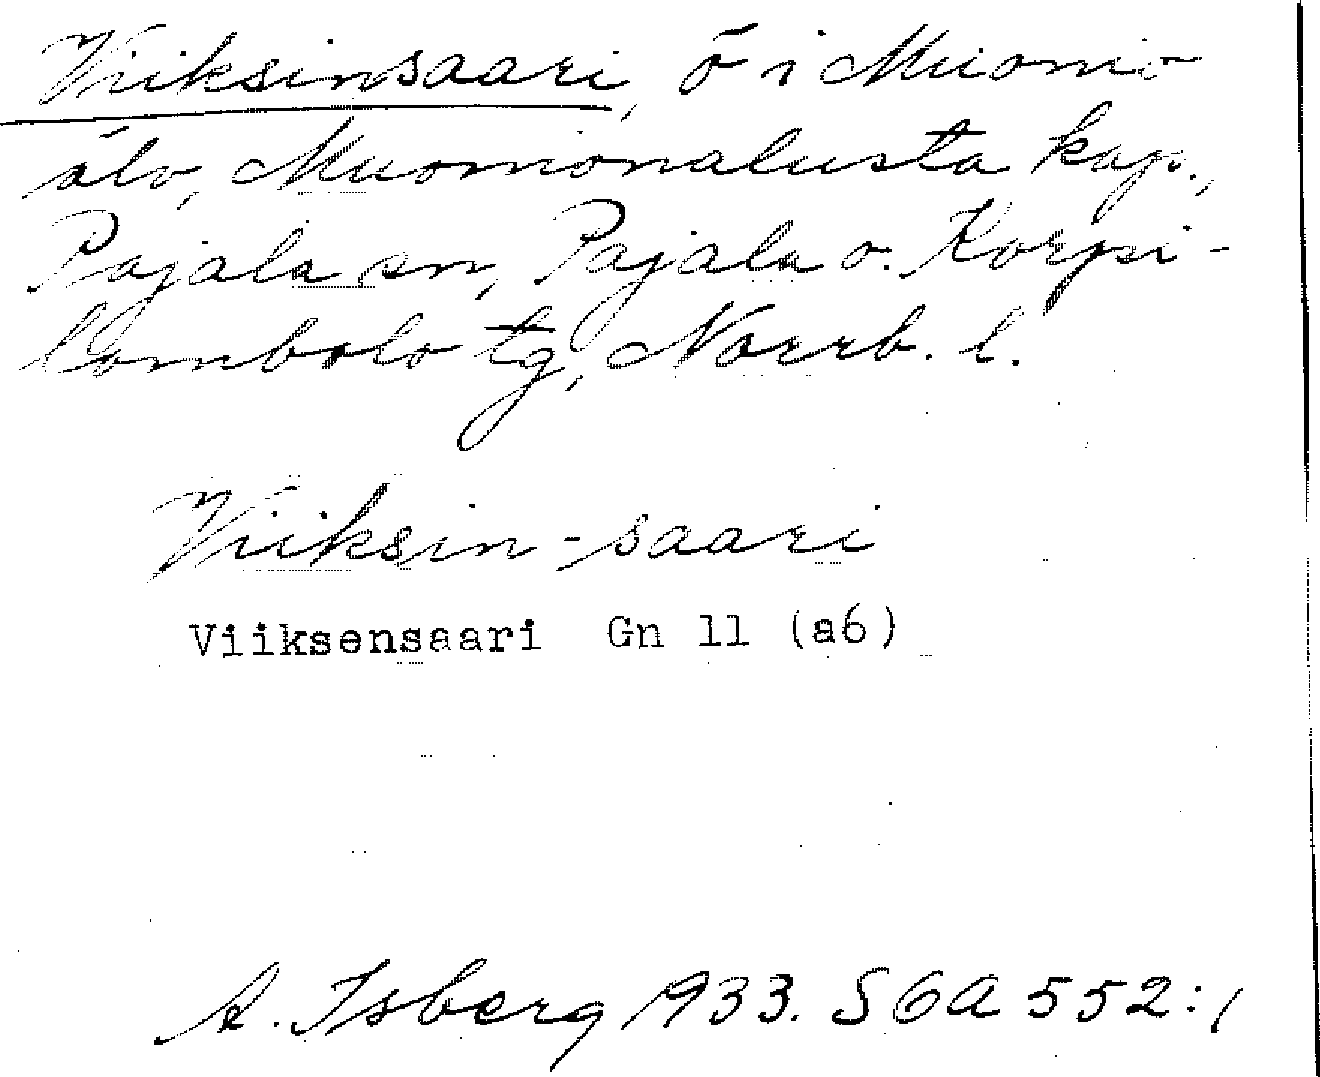 Viiksinsaari, ö i Muonio
älv, Muonionalusta kap.,
Pajala sn, Pajala o. Korpi-
lombolo tg, Norrb. l.
Viiksin-saari
Viiksensaari Gn 11 (a6)
A. Isberg 1933. SGA 552:1